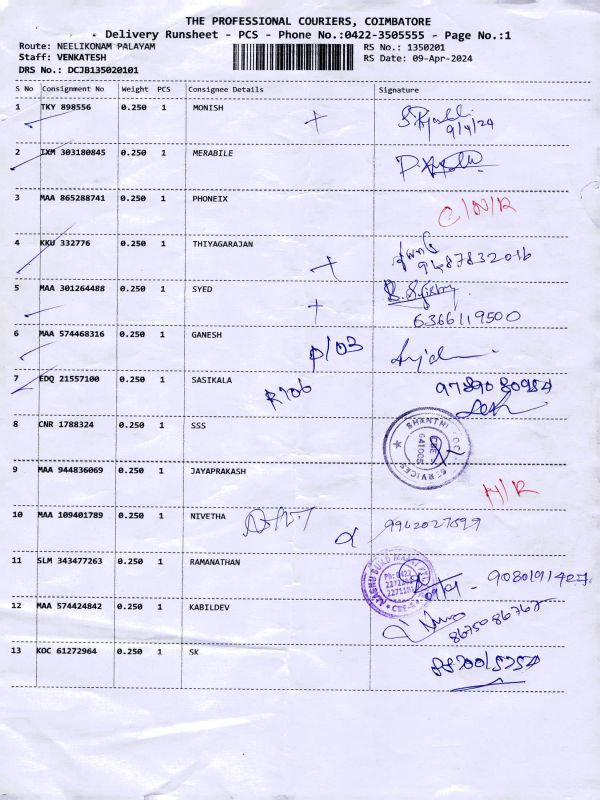 THE PROFESSIONAL COURIERS, COIMBATORE
Delivery Runsheet - PCS - Phone No.:0422-3505555 - Page No.:1
Route: NEELIKONAM PALAYAM
RS No.: 1350201
Staff: VENKATESH
RS Date: 09-Apr-2024
DRS No.: DCJB135020101
S No Consignment No Weight PCS Consignee Details Signature
1 TKY 898556 0.250 1 MONISH
9/4/24
2 IXM 303180845 0.250 1 MERABILE
3 MAA 865288741 0.250 1 PHONEIX
C/N/R
4 KKU 332776 0.250 1 THIYAGARAJAN
9487832016
5 MAA 301264488 0.250 1 SYED
6366119500
6 MAA 574468316 0.250 1 GANESH
P/03
7 EDQ 21557100 0.250 1 SASIKALA
R706 9789080954
8 CNR 1788324 0.250 1 SSS
SHANTHI SOCIAL SERVICES
CBE
641005
9 MAA 944836069 0.250 1 JAYAPRAKASH
N/R
10 MAA 109401789 0.250 1 NIVETHA
11 SLM 343477263 0.250 1 RAMANATHAN
Ph: 0422
12 MAA 574424842 0.250 1 KABILDEV
8675086762
13 KOC 61272964 0.250 1 SK